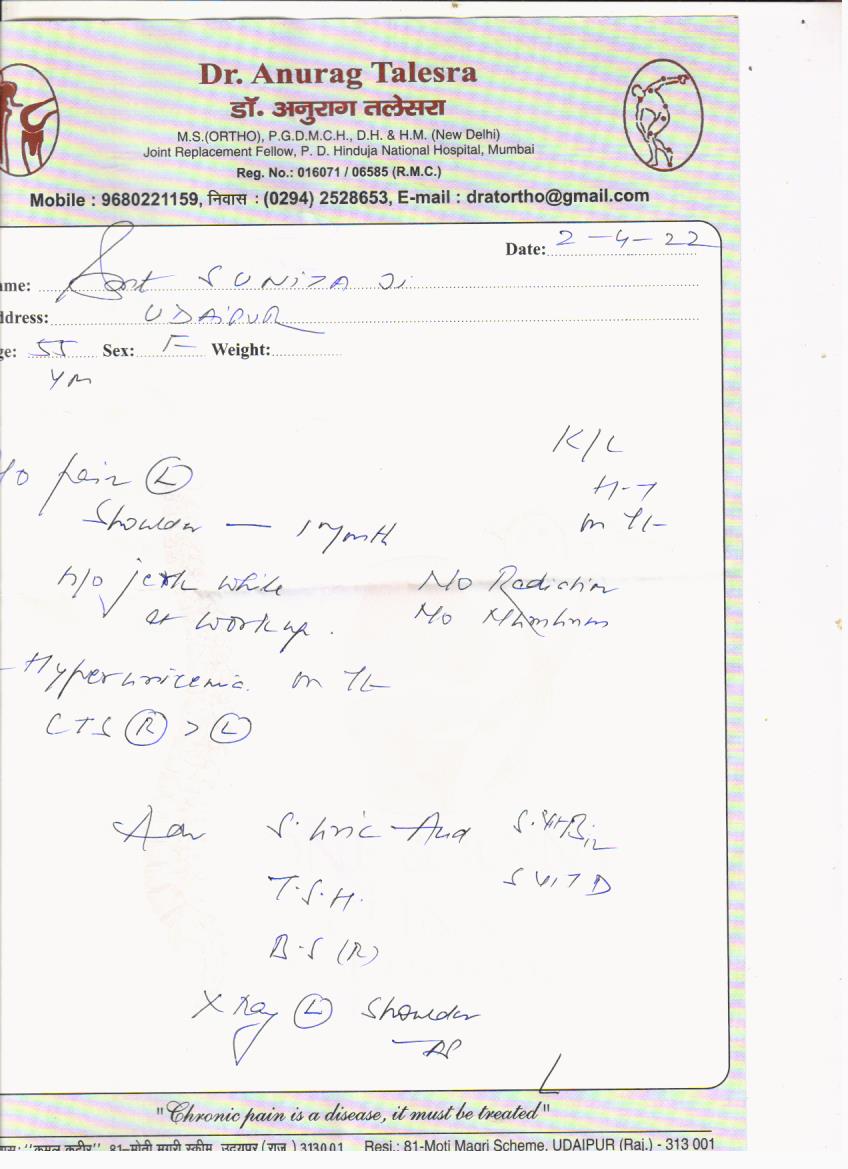 Dr. Anurag Talesra
डॉ. अनुराग तलेसरा
M.S.(ORTHO), P.G.D.M.C.H., D.H. & H.M. (New Delhi)
Joint Replacement Fellow, P. D. Hinduja National Hospital, Mumbai
Reg. No.: 016071 / 06585 (R.M.C.)
Mobile : 9680221159, निवास : (0294) 2528653, E-mail : dratortho@gmail.com
Date: 2-4-22
ame: Smt SUNITA Ji
ddress: UDAIPUR
ge: 55 Sex: F Weight:
K/C
pain (L)
Shoulder — 1 month
H/o jerk while
No Radiation
at workup.
No
Hyperuricemia. on
CTS (R) > (L)
Adv S. Uric Acid S. Vit B12
T.S.H. S VIT D
B.S (R)
X Ray (L) Shoulder
AP
"Chronic pain is a disease, it must be treated"
81-मोती मगरी स्कीम, उदयपुर (राज.) 313001 Resi.: 81-Moti Magri Scheme, UDAIPUR (Raj.) - 313 001